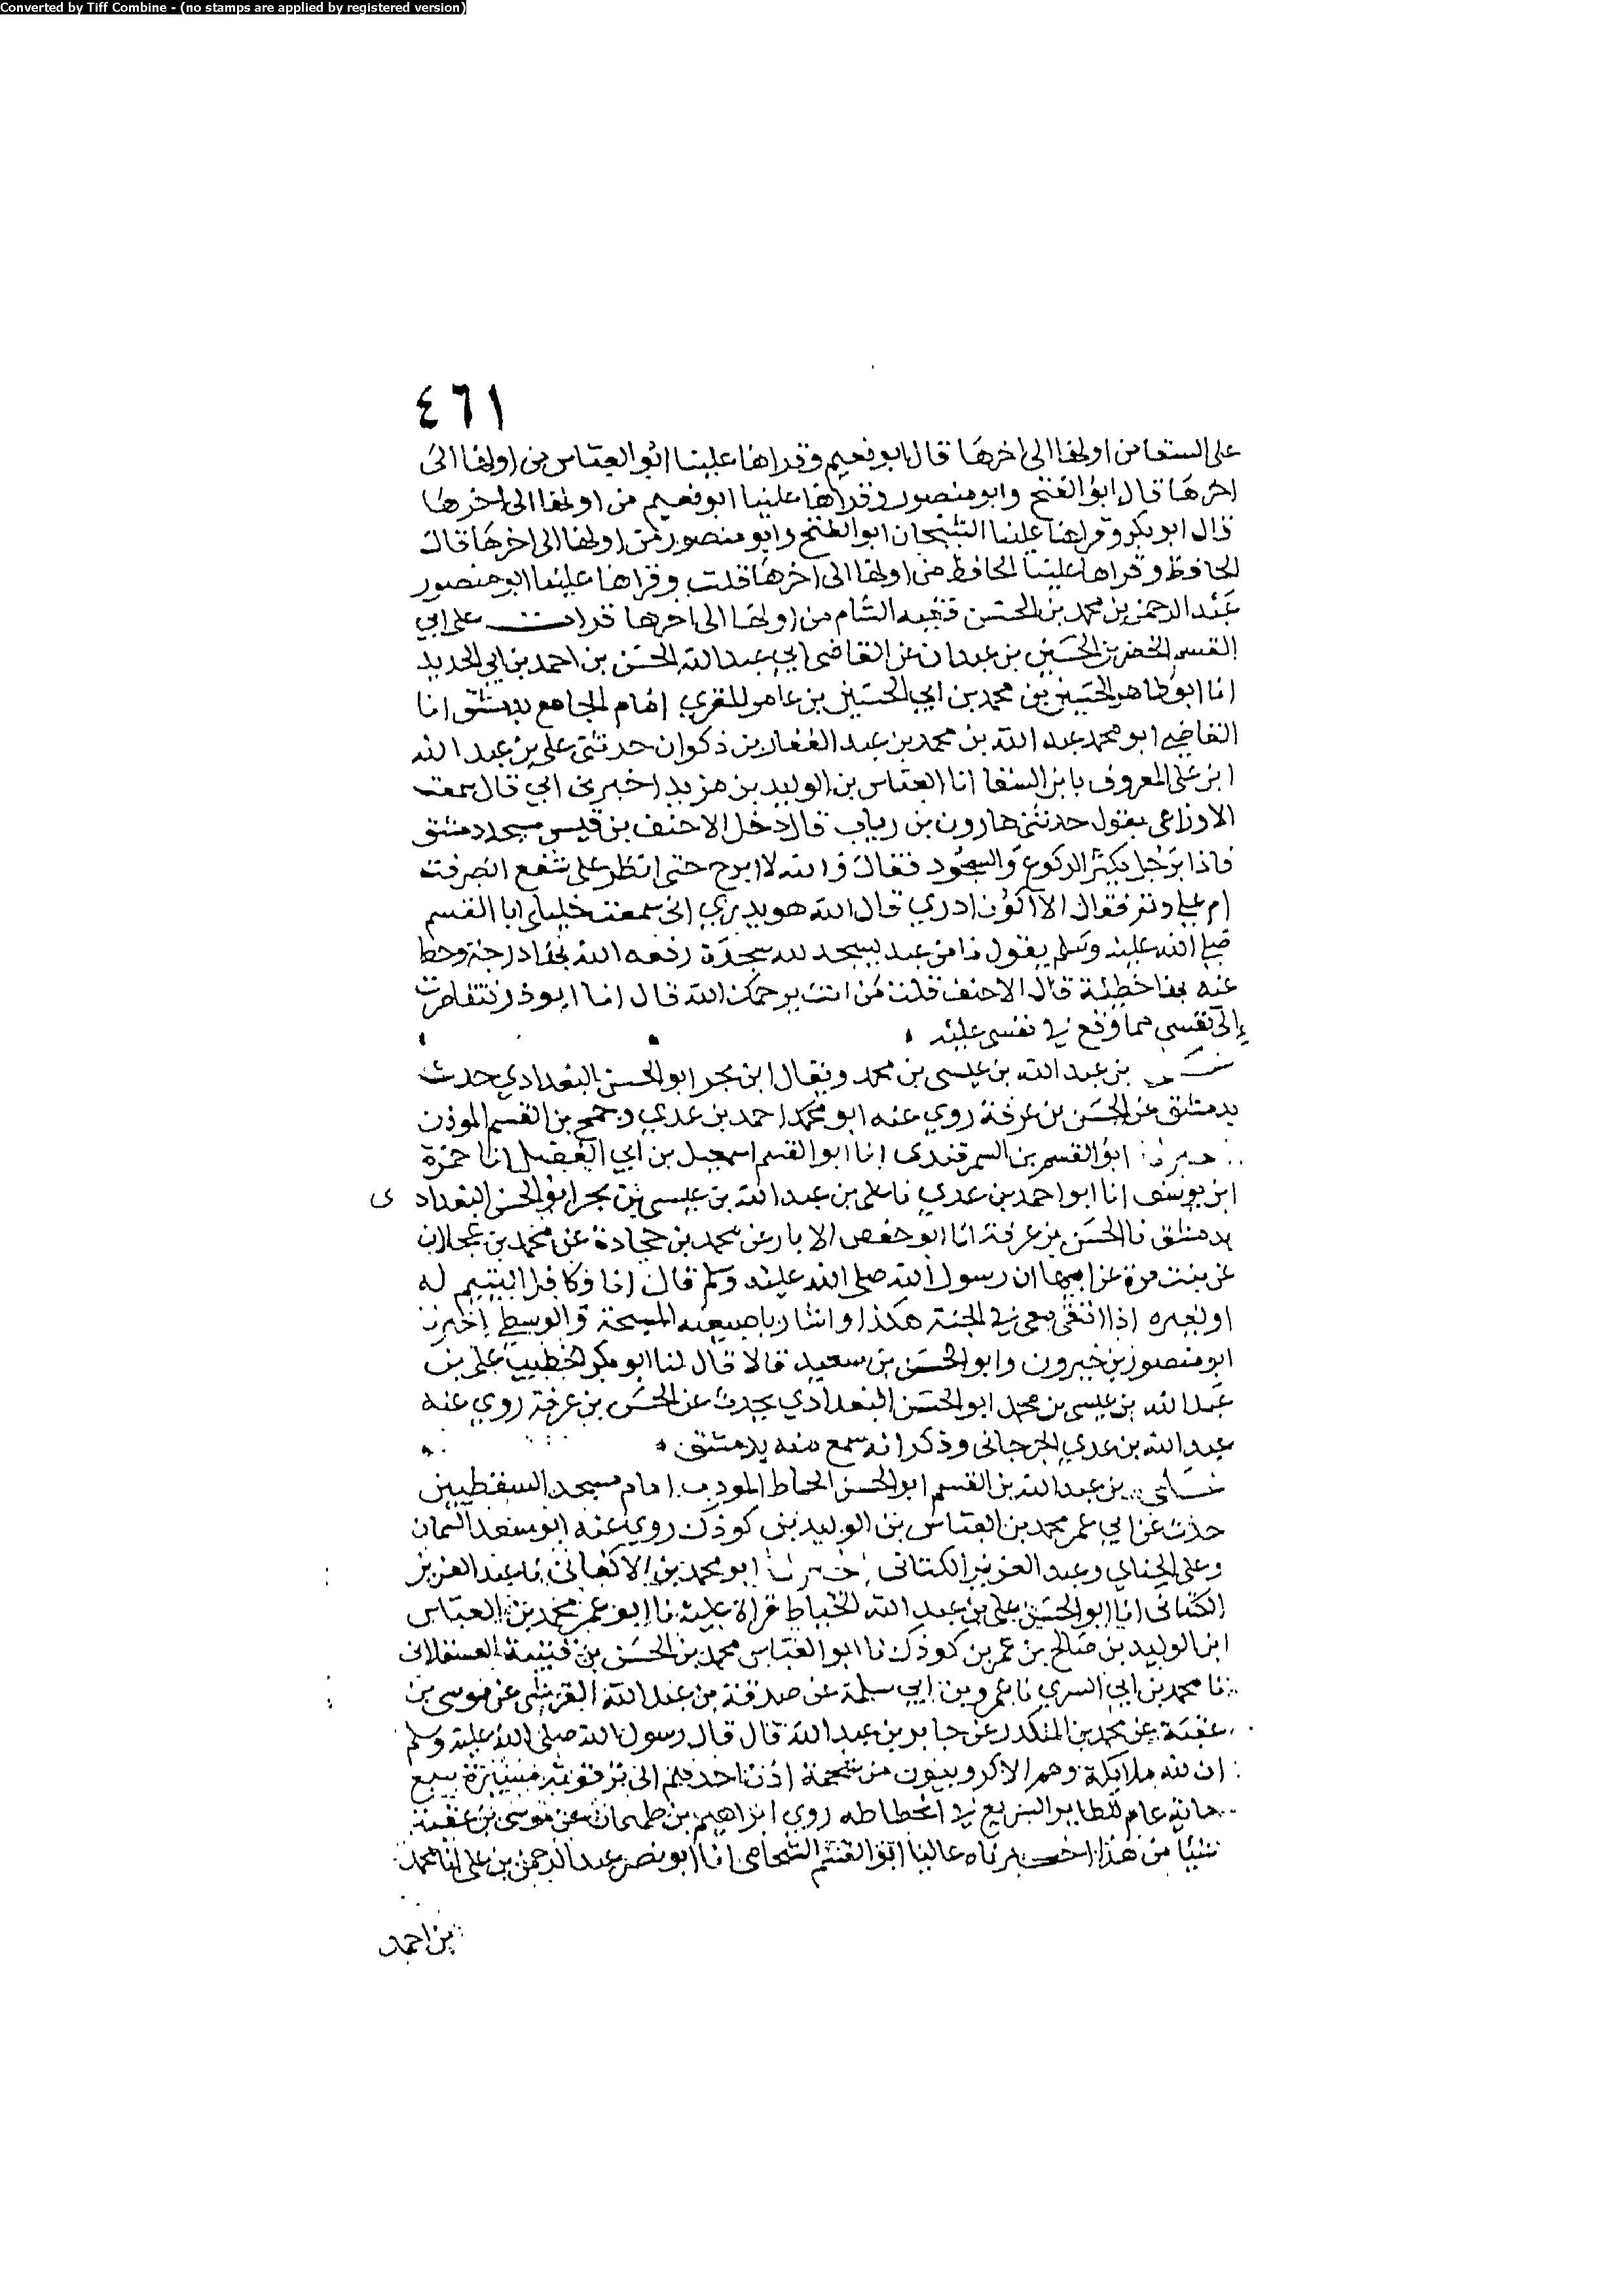 Converted by Tiff Combine - (no stamps are applied by registered version)
٤٦١
على السقا من اولها الى اخرها قال ابو نعيم وقراها علينا ابو العباس من اولها الى
اخرها قال ابو الفتح وابو منصور وقراها علينا ابو نعيم من اولها الى اخرها
قال ابو بكر وقراها علينا الشيخان ابو الفتح وابو منصور من اولها الى اخرها قال
الحافظ وقراها علينا الحافظ من اولها الى اخرها قلت وقراها علينا ابو منصور
عبد الرحمن بن محمد بن الحسن فقيه الشام من اولها الى اخرها قرات على ابي
القسم الخضر بن الحسين بن عبدان عن القاضي ابي عبد الله الحسن بن احمد بن ابي الحديد
انا ابو طاهر الحسين بن محمد بن ابي الحسين بن عامر المقري امام الجامع بدمشق انا
القاضي ابو محمد عبد الله بن محمد بن عبد الغفار بن ذكوان حدثني علي بن عبد الله
ابن علي المعروف بابن السقا انا العباس بن الوليد بن مزيد اخبرني ابي قال سمعت
الاوزاعي يقول حدثني هارون بن رياب قال دخل الاحنف بن قيس مسجد دمشق
فاذا برجل يكثر الركوع والسجود فقال والله لا ابرح حتى انظر على شفع انصرفت
ام على وتر فقال الا اكون ادري قال الله هو يدري اني سمعت خليلي ابا القسم
صلى الله عليه وسلم يقول ما من عبد يسجد لله سجدة رفعه الله بها درجة وحط
عنه بها خطئة قال الاحنف قلت من انت يرحمك الله قال انا ابو ذر فتقاصرت
الى نفسي مما وقع في نفسي عليه
بن عبد الله بن عيسى بن محمد ويقال ابن بحر ابو الحسن البغدادي حدث
بدمشق عن الحسن بن عرفة روي عنه ابو محمد احمد بن عدي وجمح بن القسم الموذن
ابو القسم بن السمرقندي انا ابو القسم اسمعيل بن ابي الفضل انا حمزة
ابن يوسف انا ابو احمد بن عدي نا علي بن عبد الله بن عيسى بن بحر ابو الحسن البغدادي
بدمشق نا الحسن بن عرفة انا ابو حفص الابار عن محمد بن حجادة عن محمد بن عجلان
عن بنت مرة عن ابيها ان رسول الله صلى الله عليه وسلم قال انا وكافل اليتيم له
او لغيره اذا اتقى معي في الجنة هكذا واشار باصبعيه المسبحة والوسطى اخبرنا
ابو منصور بن خيرون وابو الحسن بن سعيد قالا قال لنا ابو بكر الخطيب علي بن
عبد الله بن عيسى بن محمد ابو الحسن البغدادي يحدث عن الحسن بن عرفة روي عنه
عبد الله بن عدي الجرجاني وذكر انه سمع منه بدمشق
بن عبد الله بن القسم ابو الحسن الخياط المودب امام مسجد السفطيين
حدث عن ابي عمر محمد بن العباس بن الوليد بن كوذك روى عنه ابو سعد السمان
وعلى الحناي وعبد العزيز الكتاني اخبرنا ابو محمد بن الاكفاني نا عبد العزيز
الكتاني انا ابو الحسن علي بن عبد الله الخياط قراة عليه نا ابو عمر محمد بن العباس
ابن الوليد بن صالح بن عمر بن كوذك نا ابو العباس محمد بن الحسن بن قتيبة العسقلاني
نا محمد بن ابي السري نا عمرو بن ابي سلمة عن صدقة بن عبد الله القرشي عن موسى بن
عقبة عن محمد بن المنكدر عن جابر بن عبد الله قال قال رسول الله صلى الله عليه وسلم
ان لله ملايكة وهم الاكروبيون من شحمة اذن احدهم الى ترقوته مسيرة سبع
ماية عام للطاير السريع في انحطاطه روي ابراهيم بن طهمان عن موسى بن عقبة
شيئا من هذا اخبرناه عاليا ابو القسم الشحامي انا ابو نصر عبد الرحمن بن علي انا محمد
بن احمد